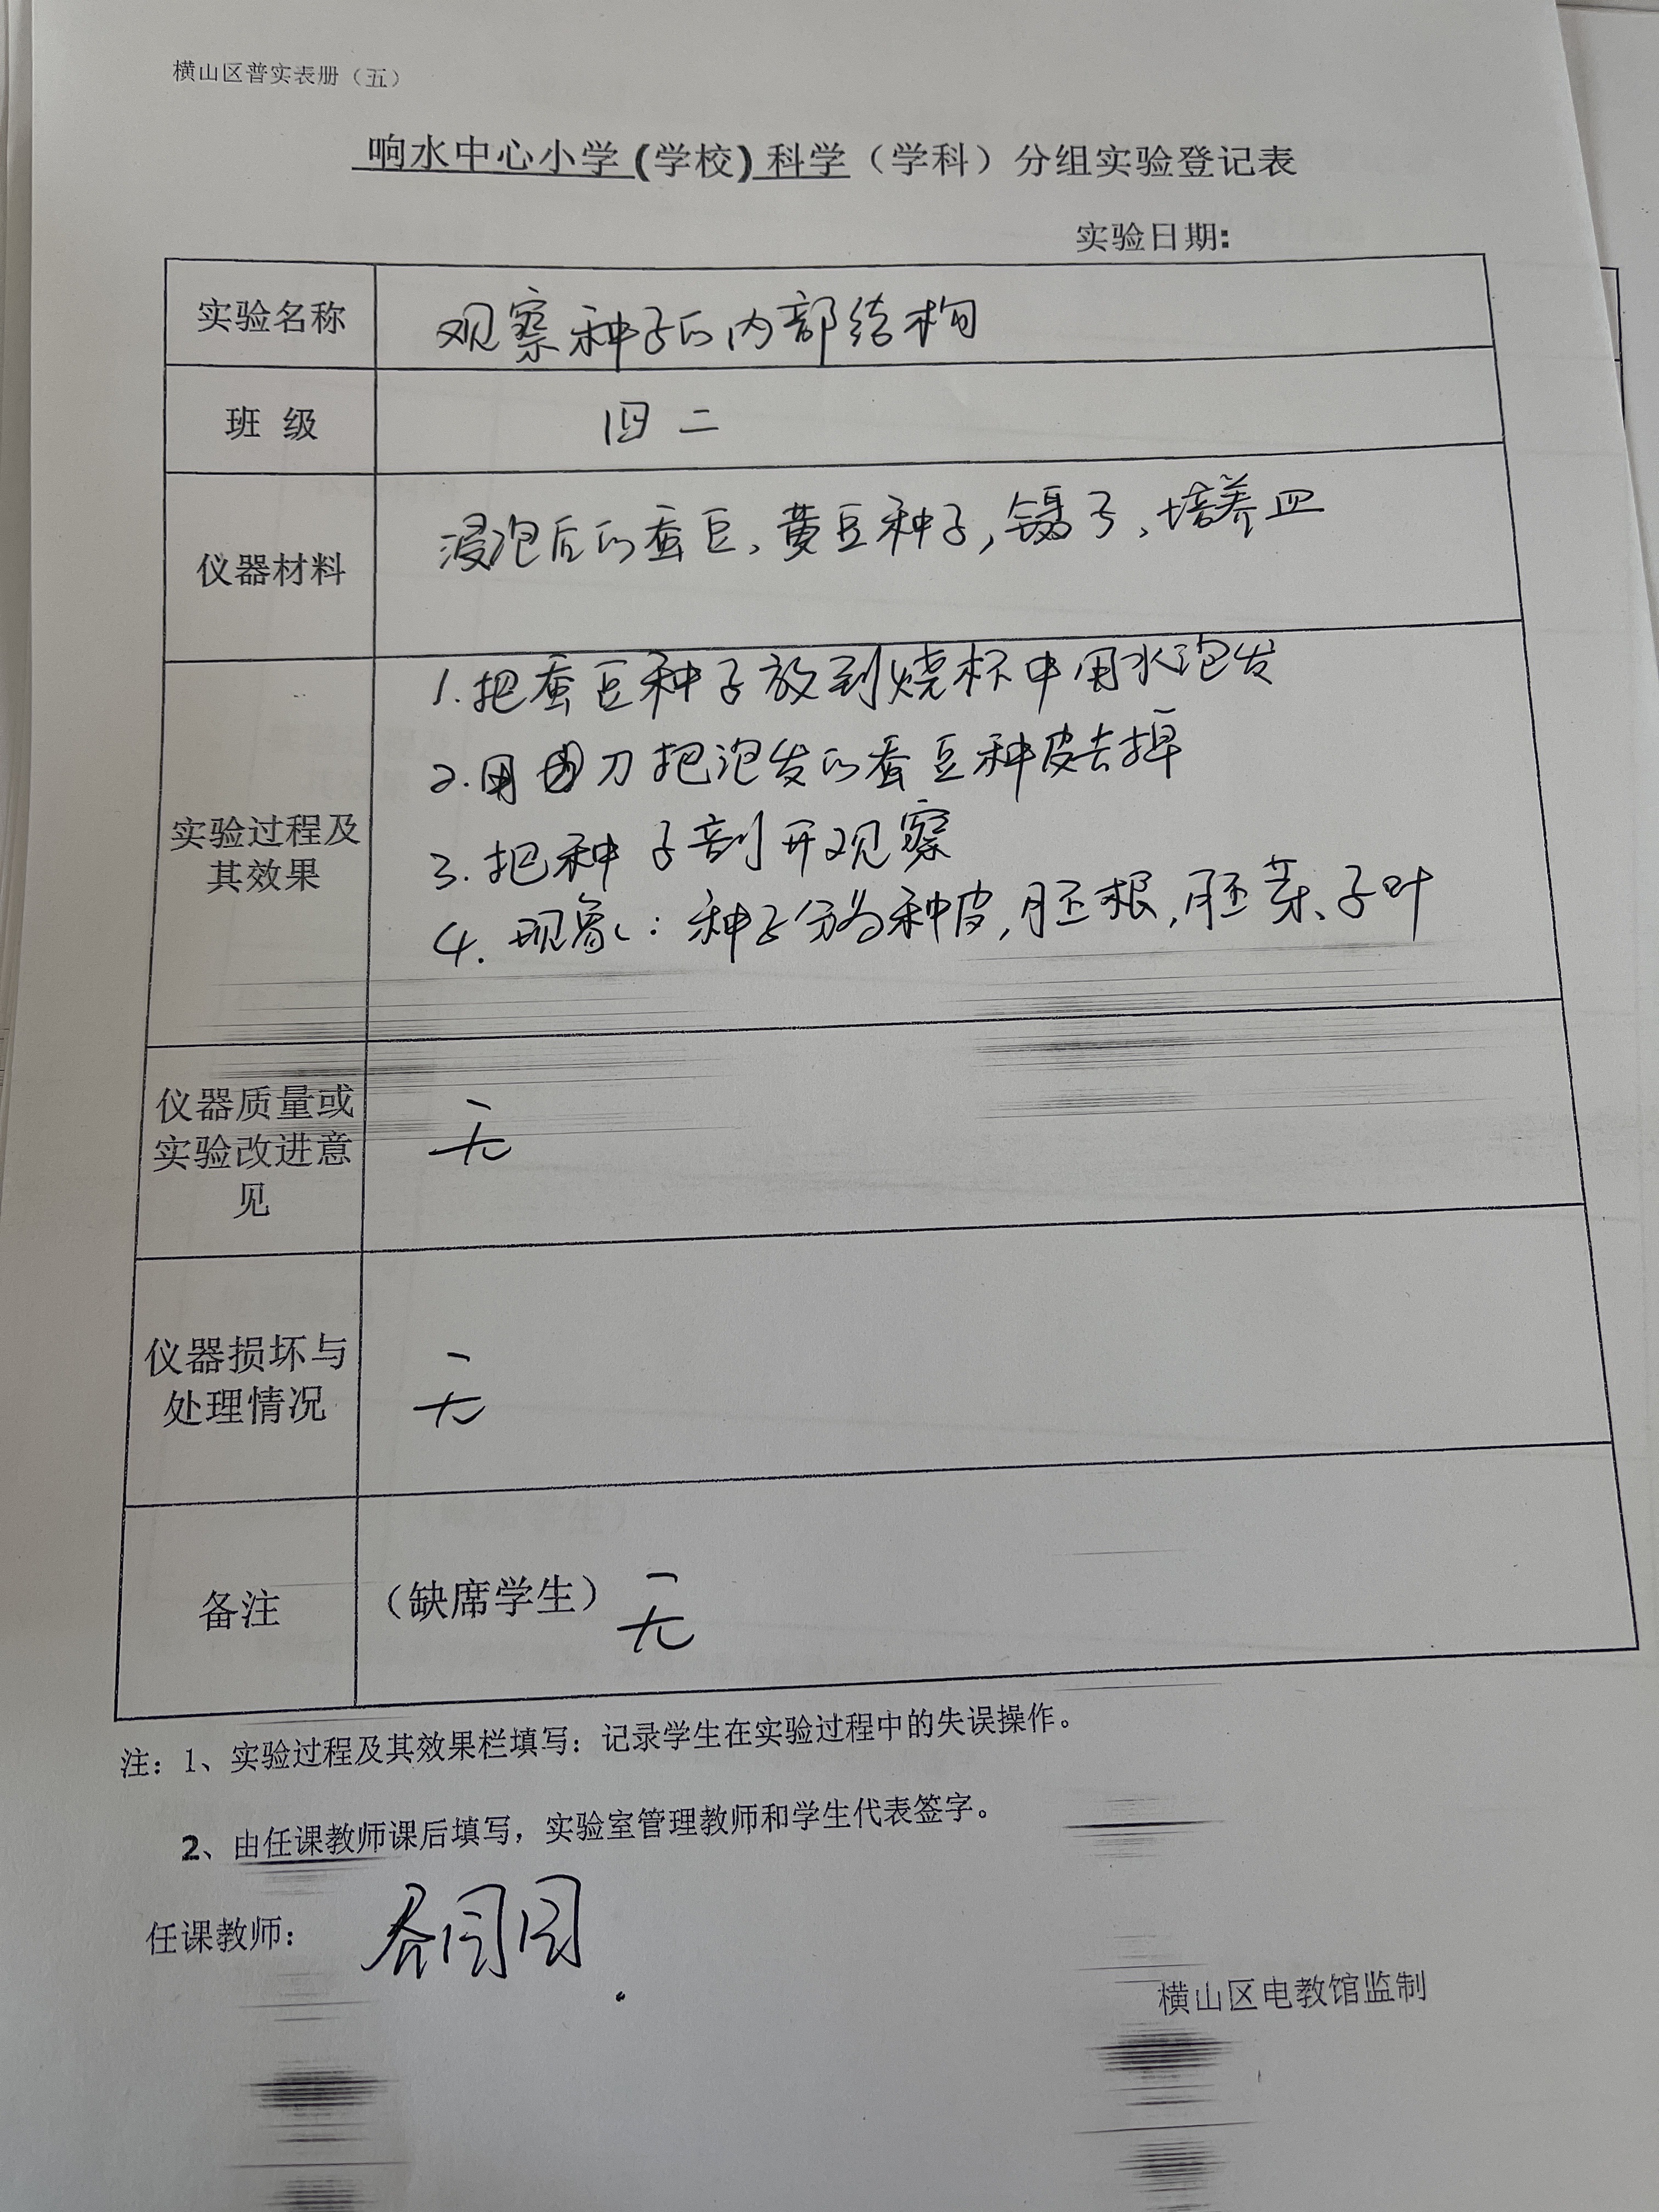 横山区普实表册（五）
响水中心小学(学校)科学（学科）分组实验登记表
实验日期:
实验名称 观察种子的内部结构
班 级 四 二
仪器材料 浸泡后的蚕豆、黄豆种子,镊子、培养皿
实验过程及其效果
1.把蚕豆种子放到烧杯中用水泡发
2.用 刀把泡发的蚕豆种皮去掉
3.把种子剖开观察
4.现象:种子分为种皮,胚根,胚芽、子叶
仪器质量或
实验改进意
见
无
仪器损坏与
处理情况
无
备注 （缺席学生） 无
注：1、实验过程及其效果栏填写：记录学生在实验过程中的失误操作。
2、由任课教师课后填写，实验室管理教师和学生代表签字。
任课教师：
横山区电教馆监制